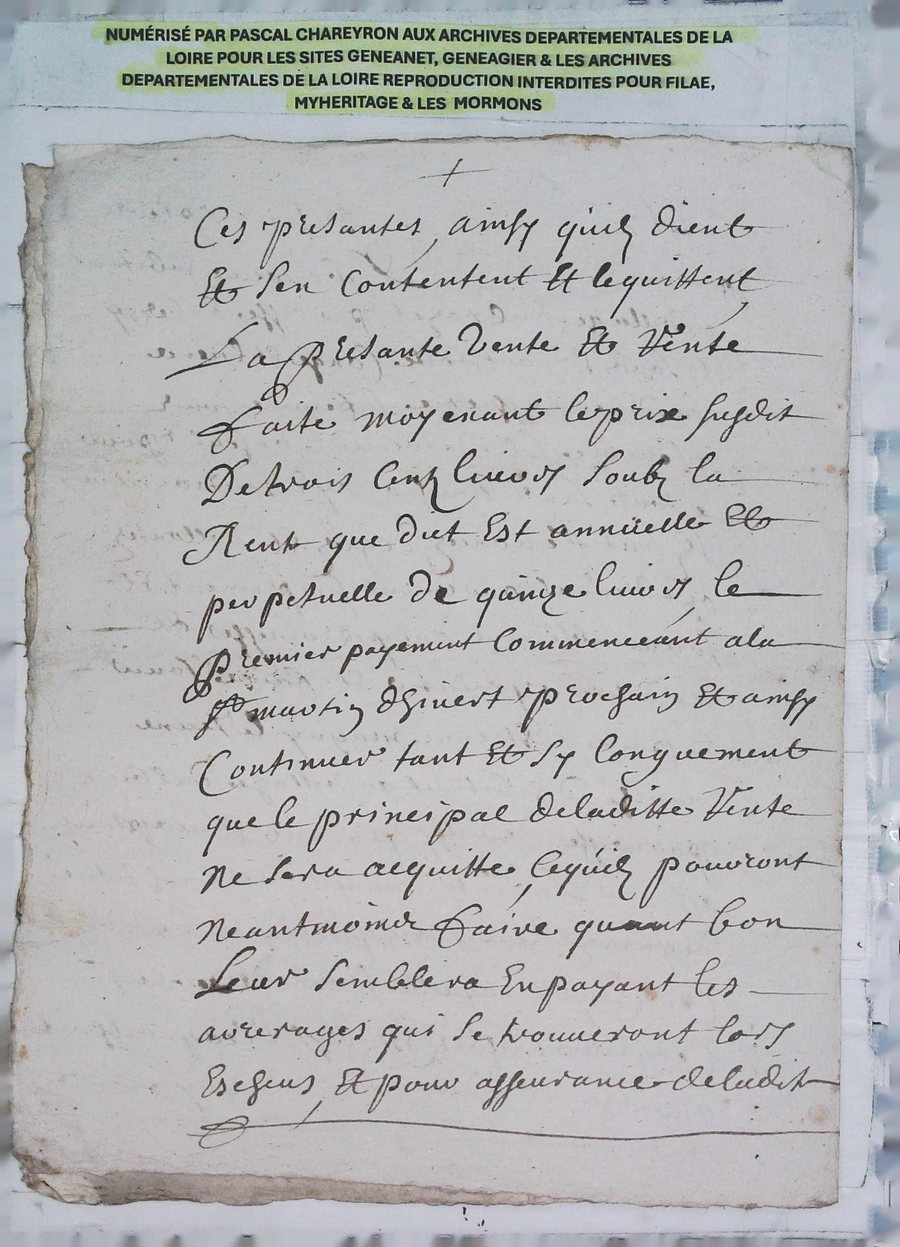 NUMÉRISÉ PAR PASCAL CHAREYRON AUX ARCHIVES DEPARTEMENTALES DE LA
LOIRE POUR LES SITES GENEANET, GENEAGIER & LES ARCHIVES
DEPARTEMENTALES DE LA LOIRE REPRODUCTION INTERDITES POUR FILAE,
MYHERITAGE & LES MORMONS
Ces presantes, ainsy quilz dient
Et sen Contentent Et lequittent
La presante Vente Et Vente
faite moyenant le prix susdit
De trois Centz livres soubz la
Rente que dict Est annuelle Et
perpetuelle de quinze livres le
Premier payement Commenceant ala
St martin dhivert prochain Et ainsy
Continuer tant Et sy longuement
que le principal deladitte Vente
ne sera acquitte, cequilz pouvront
neantmoins faire quant bon
Leur semblera En payant les
arrerages qui se trouveront lors
Escheus, Et pour asseurance deladit